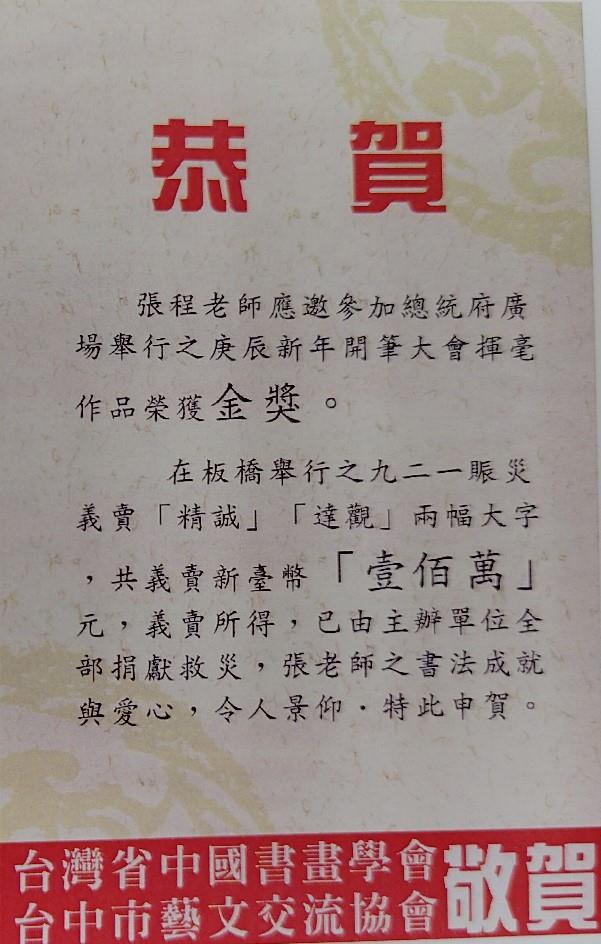 恭賀
張程老師應邀參加總統府廣
場舉行之庚辰新年開筆大會揮毫
作品榮獲金獎。
在板橋舉行之九二一賑災
義賣「精誠」「達觀」兩幅大字
，共義賣新臺幣「壹佰萬」
元，義賣所得，已由主辦單位全
部捐獻救災，張老師之書法成就
與愛心，令人景仰．特此申賀。
台灣省中國書畫學會
台中市藝文交流協會
敬賀